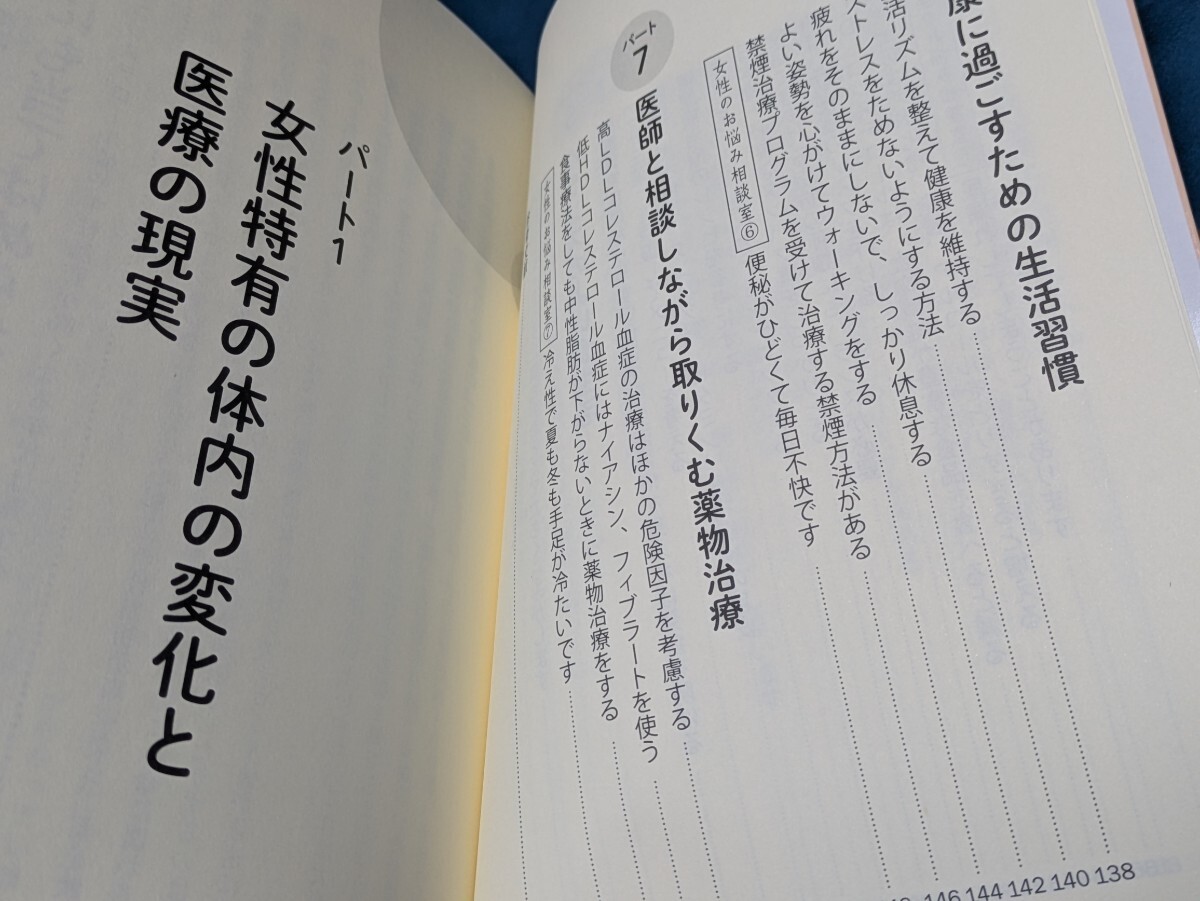 康に過ごすための生活習慣
活リズムを整えて健康を維持する
ストレスをためないようにする方法
疲れをそのままにしないで、しっかり休息する
よい姿勢を心がけてウォーキングをする
禁煙治療プログラムを受けて治療する禁煙方法がある
女性のお悩み相談室⑥ 便秘がひどくて毎日不快です
138
140
142
144
146
パート7
医師と相談しながら取りくむ薬物治療
高LDLコレステロール血症の治療はほかの危険因子を考慮する
低HDLコレステロール血症にはナイアシン、フィブラートを使う
食事療法をしても中性脂肪が下がらないときに薬物治療をする
女性のお悩み相談室⑦ 冷え性で夏も冬も手足が冷たいです
パート1
女性特有の体内の変化と
医療の現実